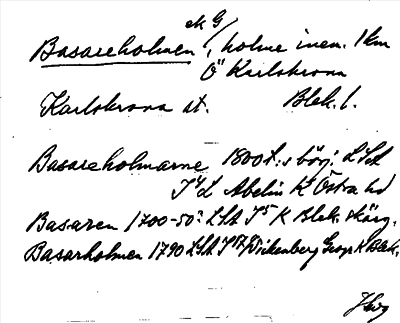 ek G/
Basareholmen /, holme inen. 1 km
Ö Karlskrona
Karlskrona st. Blek. l.
Basareholmarne 1800t:s börj: LSA
I⁴L Abelin K Östra hd
Basaren 1700-50? LSA I⁵ K Blek. skärg.
Basarholmen 1790 LSA I¹⁷ Wickenberg Geogr K Blek.